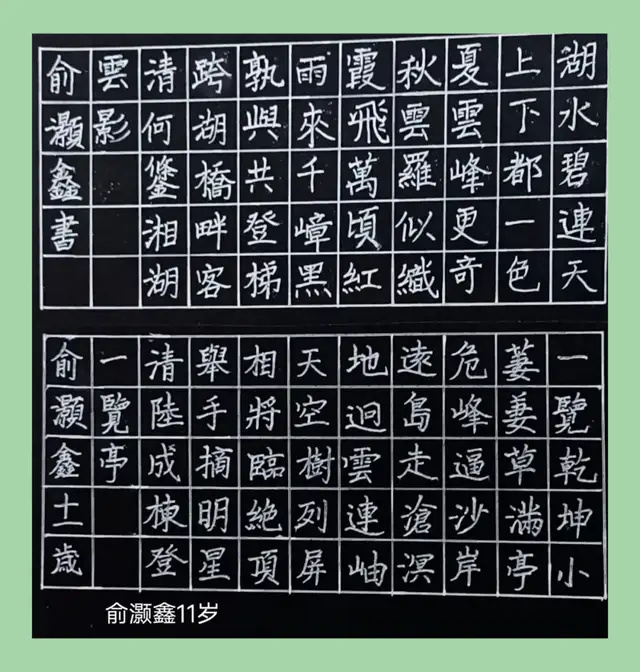 湖水碧連天
上下都一色
夏雲峰更奇
秋雲羅似織
霞飛萬頃紅
雨來千嶂黑
孰與共登梯
跨湖橋畔客
清何鋚湘湖
雲影
俞灝鑫書
一覽乾坤小
萋妻草滿亭
危峰逼沙岸
遠島走滄溟
地迥雲連岫
天空樹列屏
相將臨絶頂
舉手摘明星
清陸成棟登
一覽亭
俞灝鑫十一歳
俞灏鑫11岁